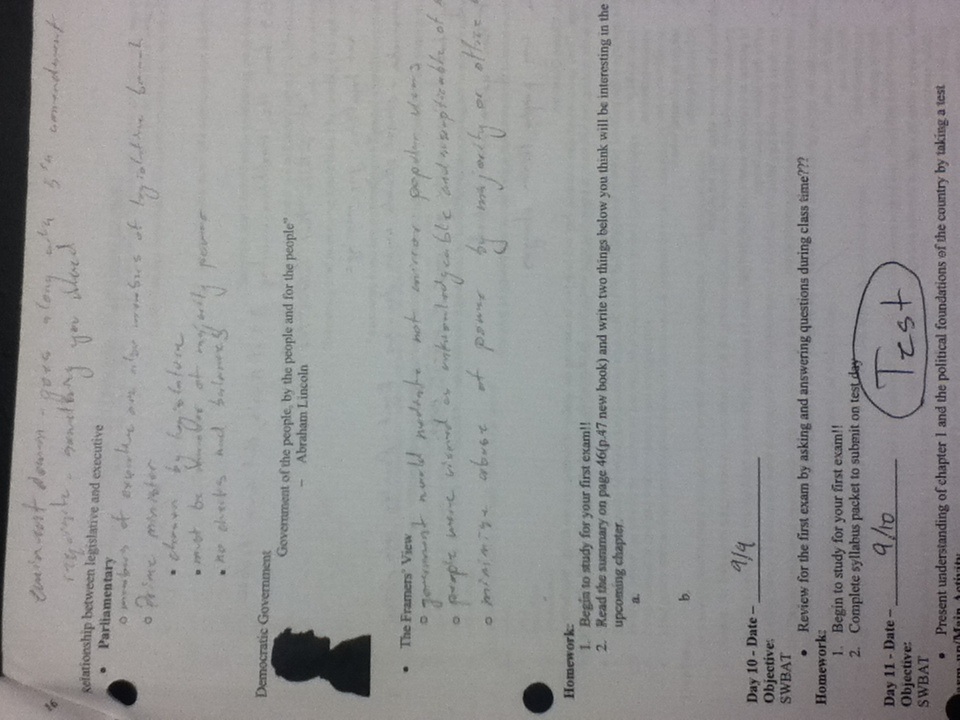 eminent domain - goes along with 5th amendment
something you
Relationship between legislative and executive
• Parliamentary
o members of executive are also members of legislative branch
o Prime minister
▪ chosen by legislature
▪ must be member of majority power
▪ no checks and balances
Democratic Government
Government of the people, by the people and for the people"
– Abraham Lincoln
• The Framers' View
o government would mediate not mirror popular views
o people were viewed as unknowledgeable and of
o minimize abuse of power by majority or
Homework:
1. Begin to study for your first exam!!
2. Read the summary on page 46(p.47 new book) and write two things below you think will be interesting in the
upcoming chapter.
a.
b.
Day 10 - Date – 9/9
Objective:
SWBAT
• Review for the first exam by asking and answering questions during class time???
Homework:
1. Begin to study for your first exam!!
2. Complete syllabus packet to submit on test day
Day 11 - Date – 9/10
Test
Objective:
SWBAT
• Present understanding of chapter 1 and the political foundations of the country by taking a test
arm-up/Main Activity